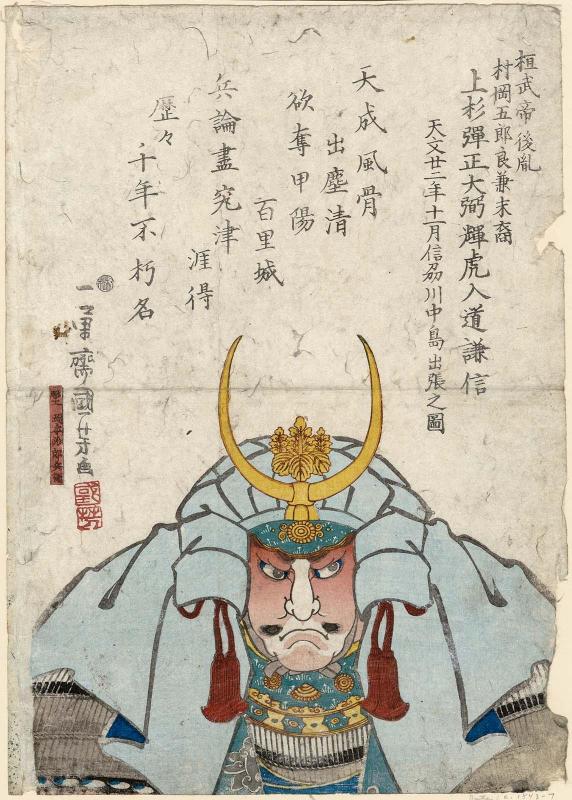 桓武帝後胤
村岡五郎良兼末裔
上杉彈正大弼輝虎入道謙信
天文廿二年十一月信刕川中島出張之圖
天成風骨
出塵清
欲奪甲陽
百里城
兵論盡究津
涯得
歴々
千年不朽名
一勇齋國芳画